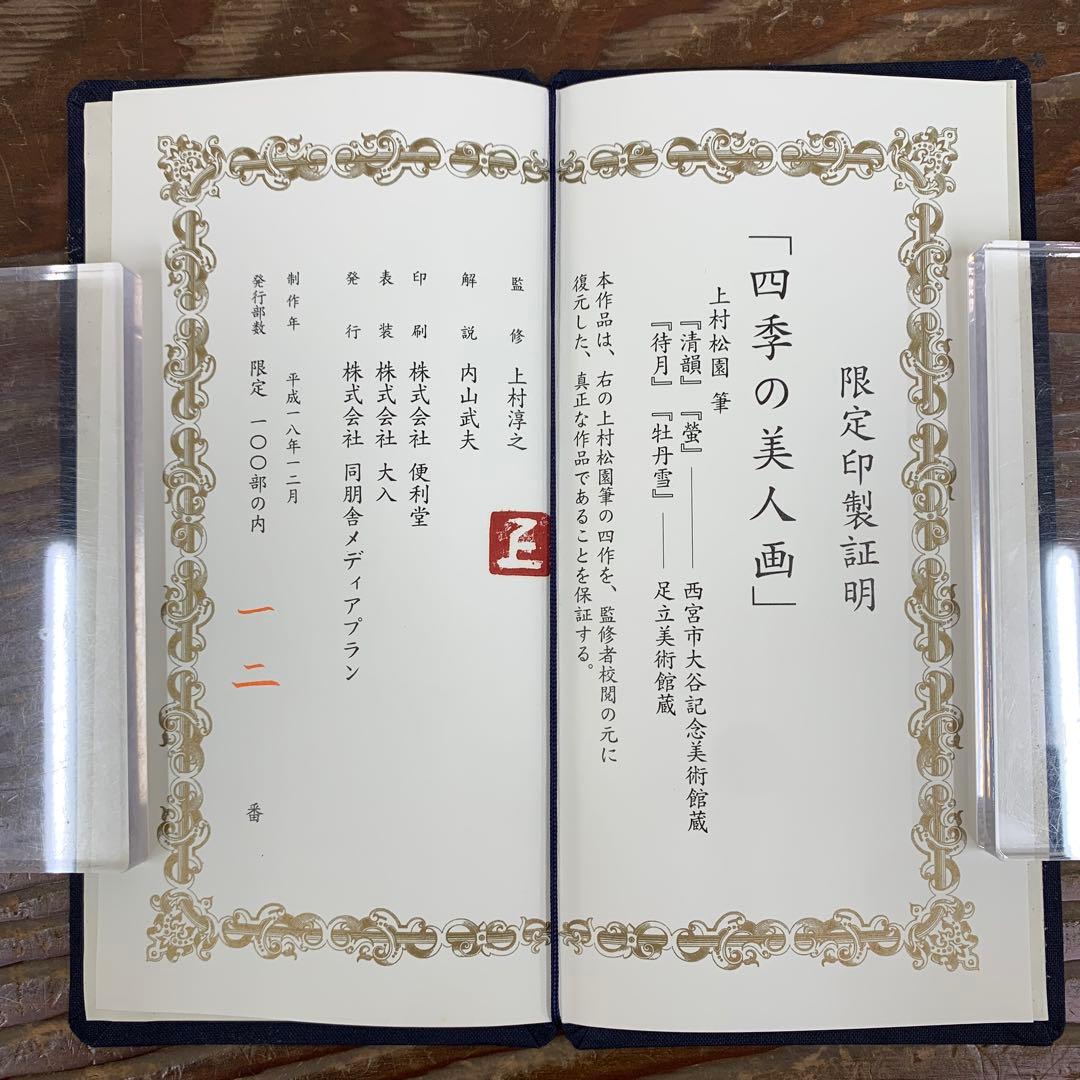 限定印製証明
「四季の美人画」
上村松園 筆
『清韻』『螢』――西宮市大谷記念美術館蔵
『待月』『牡丹雪』――足立美術館蔵
本作品は、右の上村松園筆の四作を、監修者校閲の元に
復元した、真正な作品であることを保証する。
監修 上村淳之
上
解説 内山武夫
印刷 株式会社 便利堂
表装 株式会社 大入
発行 株式会社 同朋舎メディアプラン
制作年 平成一八年一二月
発行部数 限定 一〇〇部の内 一二 番